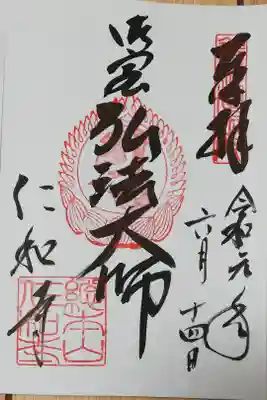 奉拝
令和元年
六月十四日
弘法大師
仁和寺
総本山
仁和寺